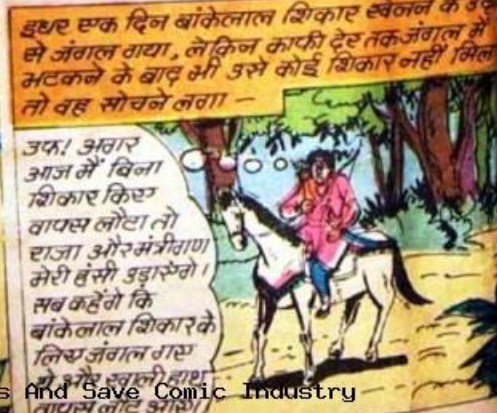 इधर एक दिन बांकेलाल शिकार खेलने के
से जंगल गया, लेकिन काफी देर तक जंगल में
भटकने के बाद भी उसे कोई शिकार नहीं मिल
तो वह सोचने लगा —
उफ! अगर
आज मैं बिना
शिकार किए
वापस लौटा तो
राजा और मंत्रीगण
मेरी हंसी उड़ाएंगे।
सब कहेंगे कि
बांकेलाल शिकार के
लिए जंगल गए
थे और खाली हाथ
वापस लौट आए।
s And Save Comic Industry